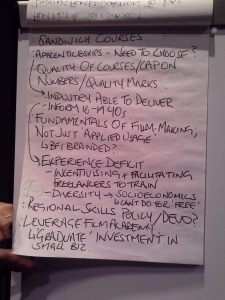 SANDWICH COURSES
APPRENTICESHIPS - NEED TO CHOOSE?
QUALITY OF COURSES/CAP ON
NUMBERS/QUALITY MARKS
↳ INDUSTRY ABLE TO DELIVER
- INFORM 16-19 40s
FUNDAMENTALS OF FILM-MAKING,
NOT JUST APPLIED USAGE
↳ BFI BRANDED?
↳ EXPERIENCE DEFICIT
- INCENTIVISING + FACILITATING
FREELANCERS TO TRAIN
- DIVERSITY → SOCIOECONOMICS
'CANT DO FOR 'FREE'
: REGIONAL SKILLS POLICY/DEVO?
LEVERAGE FILM ACADEMY
↳ 'GRADUATE' INVESTMENT IN
SMALL BIZ